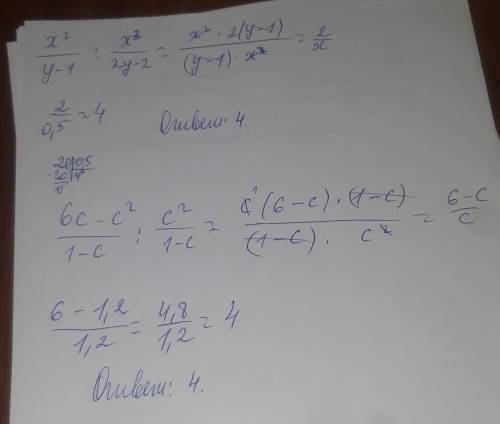 x²/(y-1) : x³/(2y-2) = (x² · 2(y-1))/((y-1) · x³) = 2/x
2/0,5 = 4 Ответ: 4.
(6c - c²)/(1-c) : c²/(1-c) = (c(6-c) · (1-c))/((1-c) · c²) = (6-c)/c
(6 - 1,2)/1,2 = 4,8/1,2 = 4
Ответ: 4.